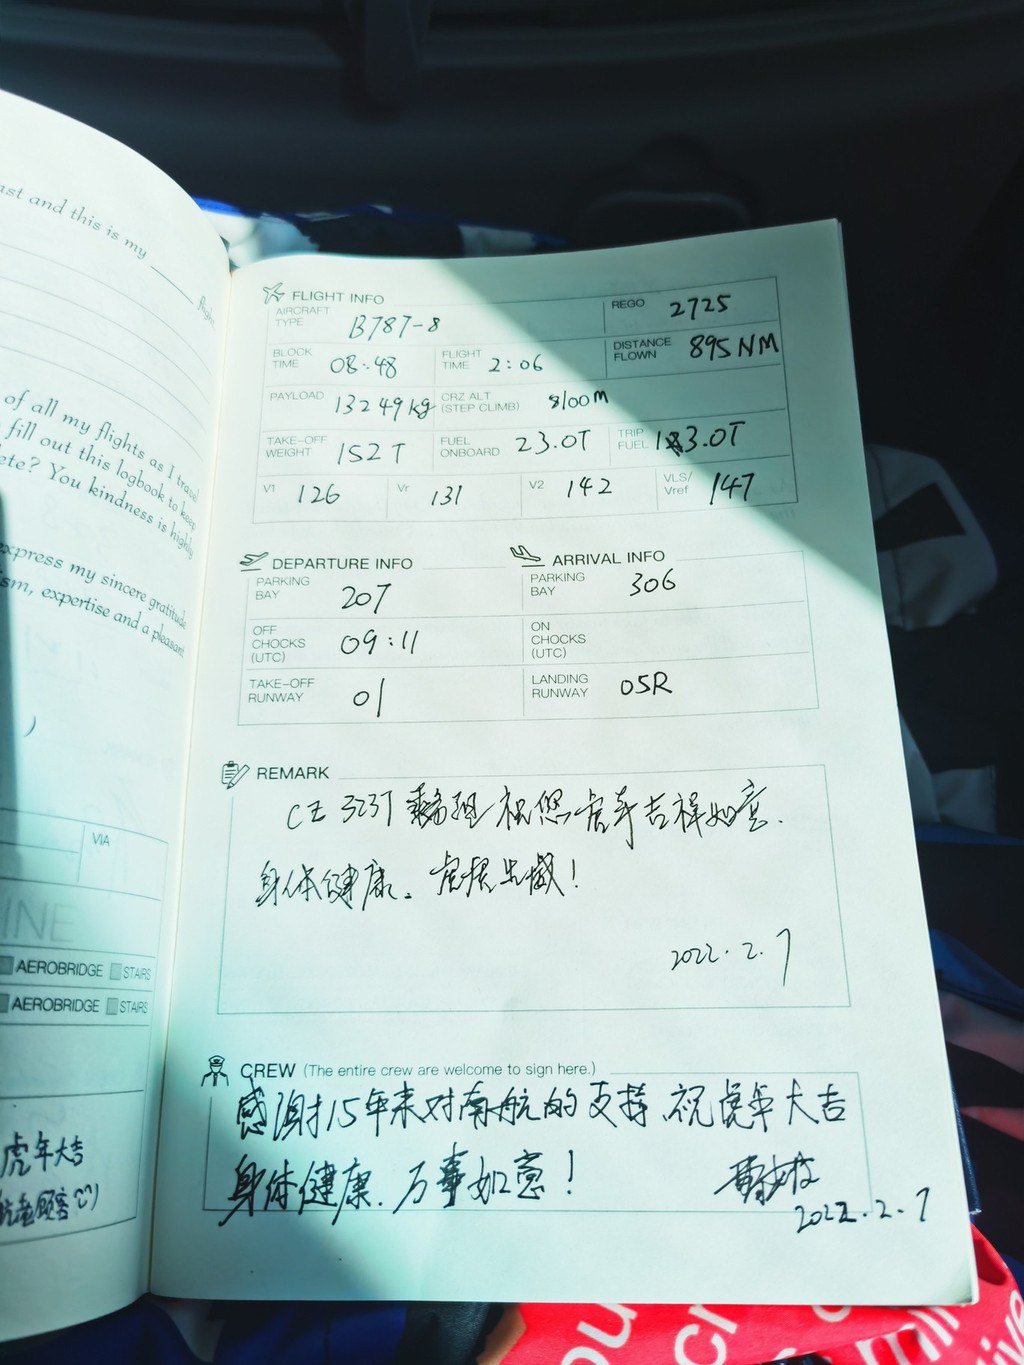 ast and this is my
flight
of all my flights as I travel
fill out this logbook to keep
ete? You kindness is highly
express my sincere gratitude
sm, expertise and a pleasant
VIA
INE
AEROBRIDGE STAIRS
AEROBRIDGE STAIRS
虎年大吉
航老顾客
FLIGHT INFO
AIRCRAFT TYPE B787-8 REGO 2725
BLOCK TIME 08:48 FLIGHT TIME 2:06 DISTANCE FLOWN 895NM
PAYLOAD 13249kg CRZ ALT (STEP CLIMB) 8100M
TAKE-OFF WEIGHT 152T FUEL ONBOARD 23.0T TRIP FUEL 13.0T
V1 126 Vr 131 V2 142 VLS/Vref 147
DEPARTURE INFO ARRIVAL INFO
PARKING BAY 207 PARKING BAY 306
OFF CHOCKS (UTC) 09:11 ON CHOCKS (UTC)
TAKE-OFF RUNWAY 01 LANDING RUNWAY 05R
REMARK
CZ 323T 乘务组祝您虎年吉祥如意.
身体健康。虎虎生威!
2022.2.7
CREW (The entire crew are welcome to sign here.)
感谢15年来对南航的支持.祝虎年大吉
身体健康.万事如意!
2022.2.7